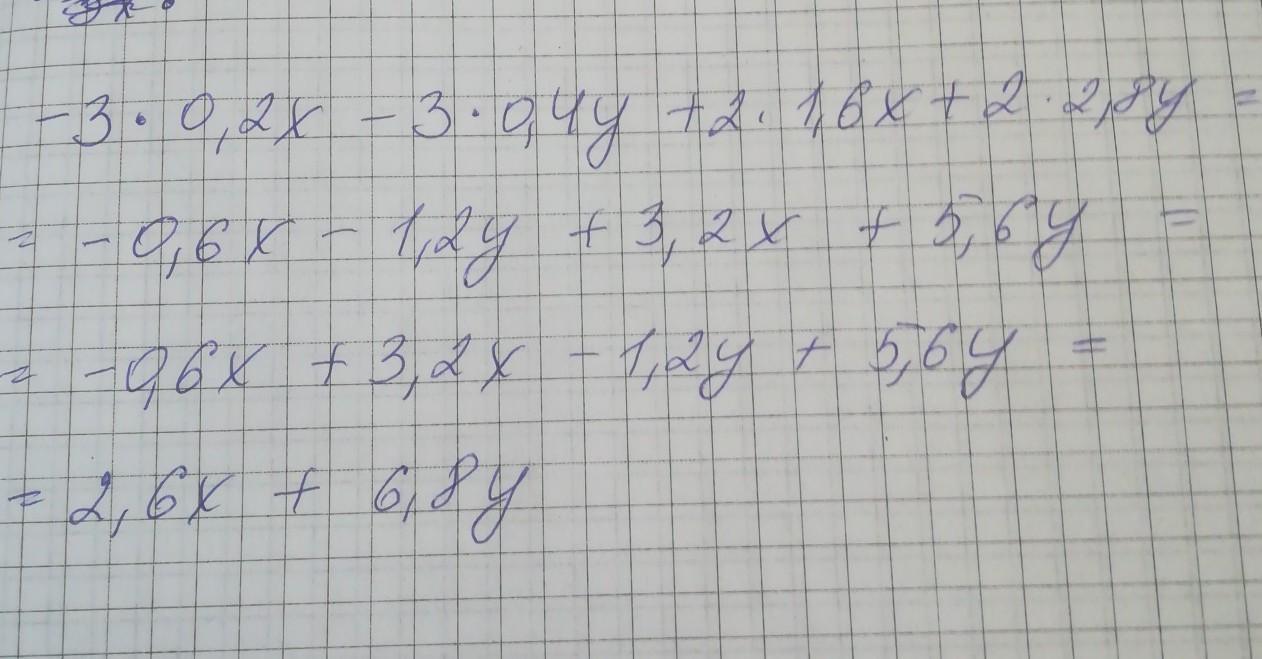 -3·0,2x - 3·0,4y + 2·1,6x + 2·2,8y =
= -0,6x - 1,2y + 3,2x + 5,6y =
= -0,6x + 3,2x - 1,2y + 5,6y =
= 2,6x + 6,8y